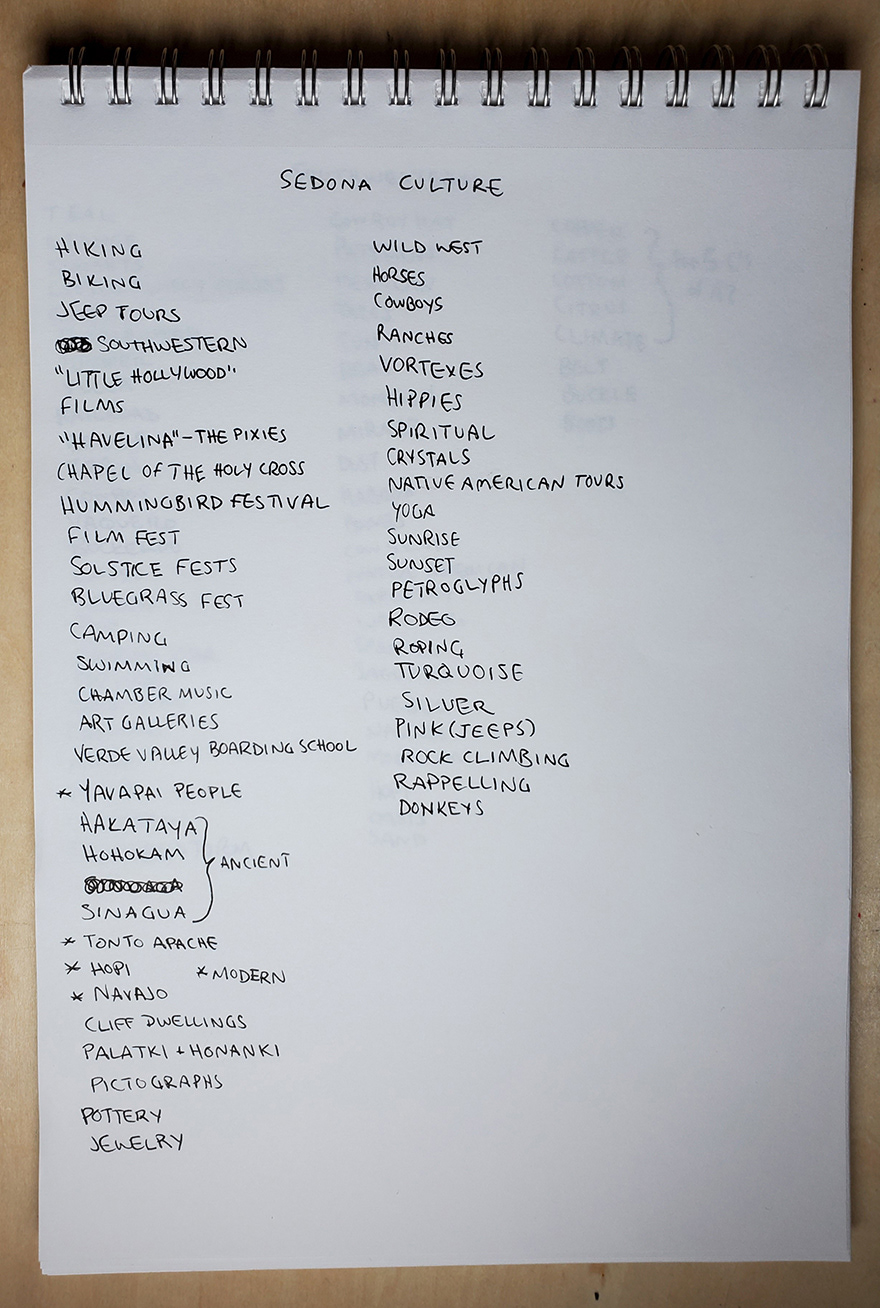 SEDONA CULTURE
HIKING
BIKING
JEEP TOURS
SOUTHWESTERN
"LITTLE HOLLYWOOD"
FILMS
"HAVELINA" - THE PIXIES
CHAPEL OF THE HOLY CROSS
HUMMINGBIRD FESTIVAL
FILM FEST
SOLSTICE FESTS
BLUEGRASS FEST
CAMPING
SWIMMING
CHAMBER MUSIC
ART GALLERIES
VERDE VALLEY BOARDING SCHOOL
* YAVAPAI PEOPLE
HAKATAYA
HOHOKAM
ANCIENT
SINAGUA
* TONTO APACHE
* HOPI
* MODERN
* NAVAJO
CLIFF DWELLINGS
PALATKI + HONANKI
PICTOGRAPHS
POTTERY
JEWELRY
WILD WEST
HORSES
COWBOYS
RANCHES
VORTEXES
HIPPIES
SPIRITUAL
CRYSTALS
NATIVE AMERICAN TOURS
YOGA
SUNRISE
SUNSET
PETROGLYPHS
RODEO
ROPING
TURQUOISE
SILVER
PINK (JEEPS)
ROCK CLIMBING
RAPPELLING
DONKEYS